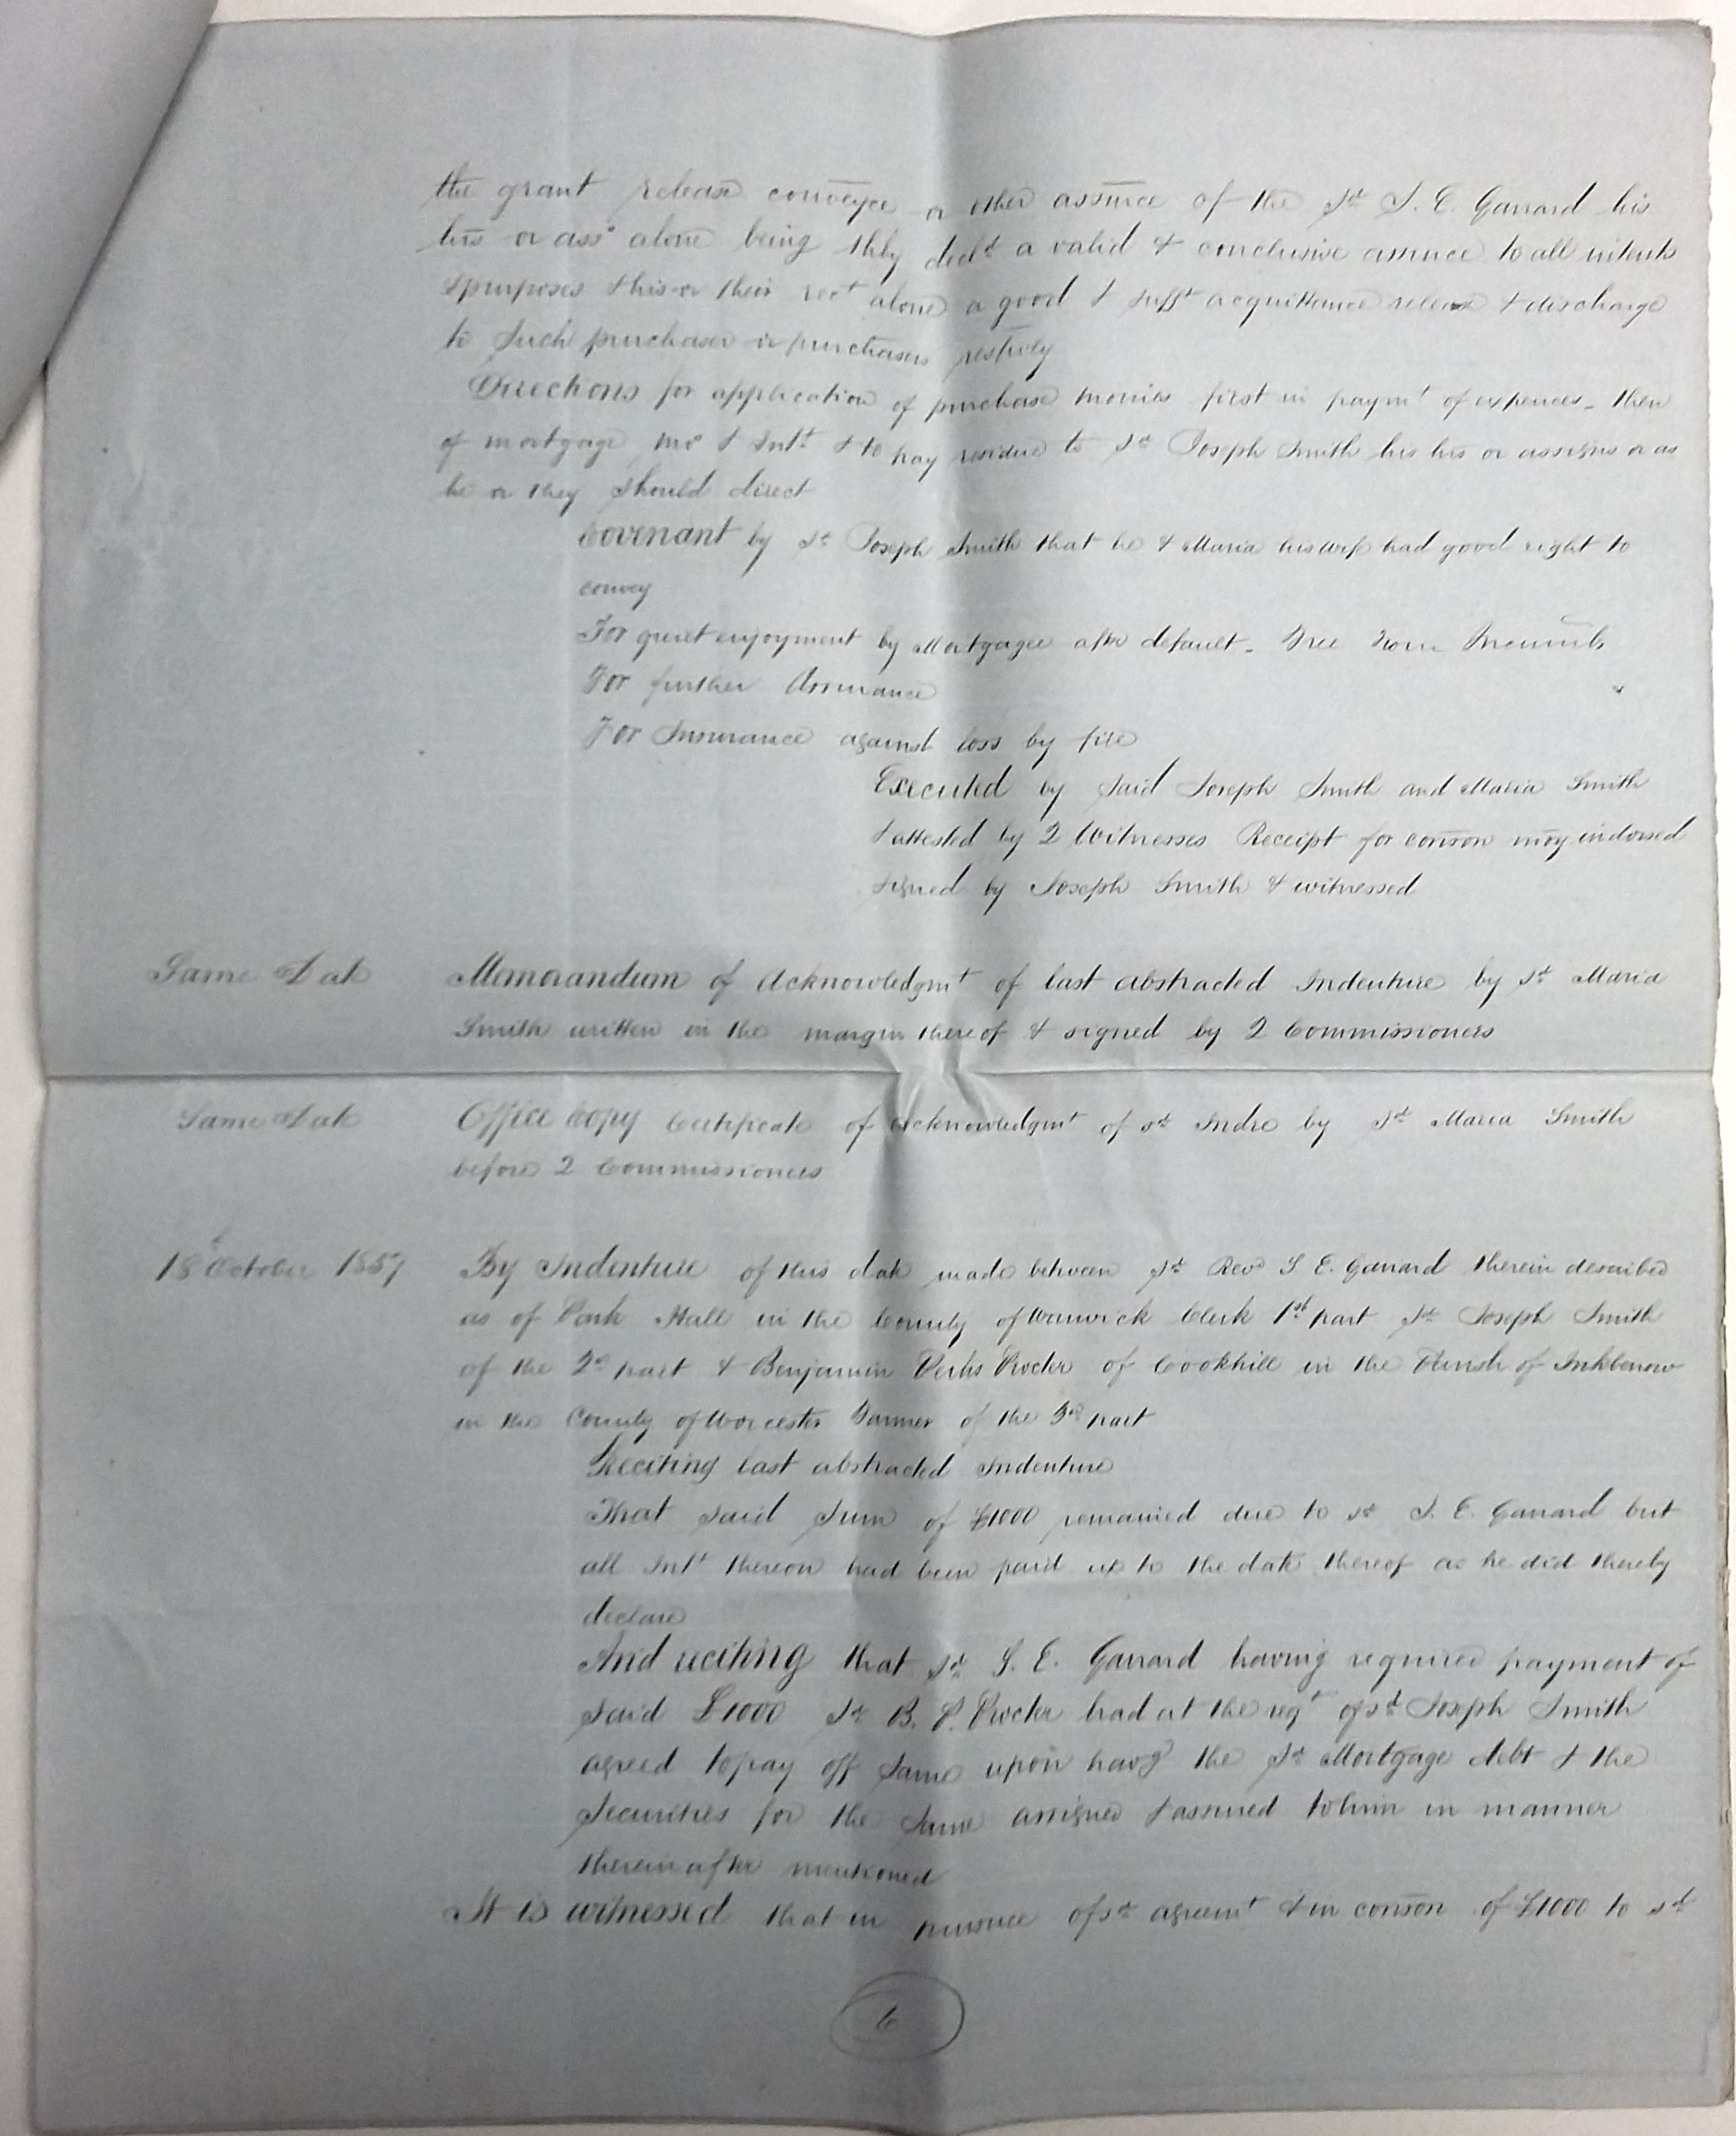 the grant release conveyce or other assurce of the sd S. E. Garrard his
hrs or asss alone being thby decld a valid & conclusive assurce to all intents
& purposes & his or their rect alone a good & sufft acquittance release & discharge
to such purchaser or purchasers restively
Directions for application of purchase monies first in paymt of expences - then
of mortgage mo & Intt & to pay residue to sd Joseph Smith his hrs or assigns or as
he or they should direct
Covenant by sd Joseph Smith that he & Maria his wife had good right to
convey
For quiet enjoyment by Mortgagee after default - Free from Incumbs
For further Assurance
For Insurance against loss by fire
Executed by said Joseph Smith and Maria Smith
& attested by 2 Witnesses Receipt for conson moy indorsed
signed by Joseph Smith & witnessed
Same Date Memorandum of Acknowledgmt of last abstracted Indenture by sd Maria
Smith written in the margin thereof & signed by 2 Commissioners
Same Date Office Copy Certificate of Acknowledgmt of sd Indre by sd Maria Smith
before 2 Commissioners
18 October 1857 By Indenture of this date made between sd Revd S E. Garrard therein described
as of Park Hall in the County of Warwick Clerk 1st part sd Joseph Smith
of the 2nd part & Benjamin Perks Procter of Cookhill in the Parish of Inkberrow
in the County of Worcester Farmer of the 3rd part
Reciting last abstracted Indenture
That said sum of £1000 remained due to sd S. E. Garrard but
all Intt thereon had been paid up to the date thereof as he did thereby
declare
And reciting that sd S. E. Garrard having required payment of
said £1000 sd B. P. Procter had at the reqt of sd Joseph Smith
agreed to pay off same upon havg the sd Mortgage debt & the
Securities for the same assigned & assured to him in manner
therein after mentioned
It is witnessed that in pursuce of sd agreemt & in conson of £1000 to sd
6